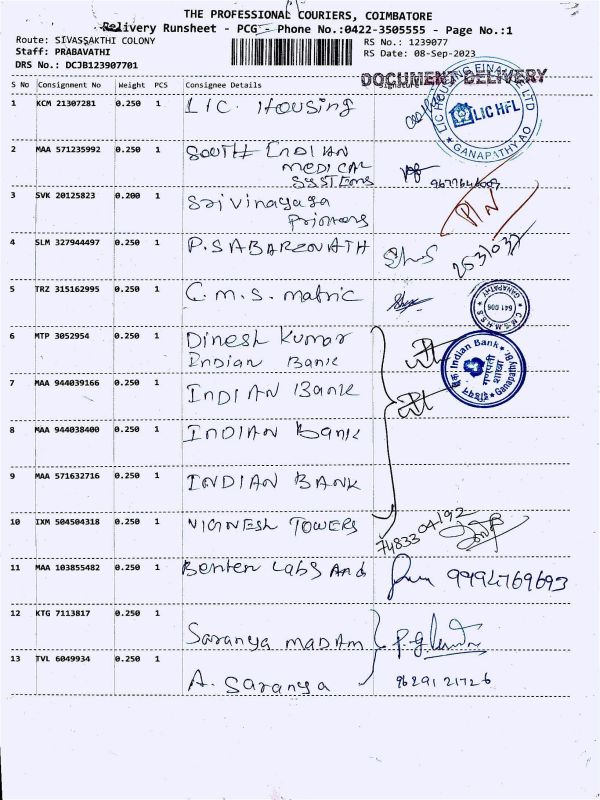 THE PROFESSIONAL COURIERS, COIMBATORE
Delivery Runsheet - PCG - Phone No.:0422-3505555 - Page No.:1
Route: SIVASSAKTHI COLONY
RS No.: 1239077
Staff: PRABAVATHI
RS Date: 08-Sep-2023
DRS No.: DCJB123907701
DOCUMENT DELIVERY
S No Consignment No Weight PCS Consignee Details Signature
1 KCM 21307281 0.250 1 LIC. Housing
LIC HOUSING FINANCE LTD
LIC HFL
GANAPATHY AO
2 MAA 571235992 0.250 1 SOUTH INDIAN
MEDICAL
SYSTEMS
3 SVK 20125823 0.200 1 Sri vinayaga
Printers
PIN
4 SLM 327944497 0.250 1 P. SABAREENATH
5 TRZ 315162995 0.250 1 C.M.S. matric
GANAPATHY
641 006
C.M.S.M.H.S.S
6 MTP 3052954 0.250 1 Dinesh Kumar
Indian Bank
Indian Bank
गणपती
शाखा
Ganapathy Br.
7 MAA 944039166 0.250 1 INDIAN Bank
8 MAA 944038400 0.250 1 INDIAN Bank
9 MAA 571632716 0.250 1 INDIAN BANK
10 IXM 504504318 0.250 1 VIGNESH TOWERS
74833 04192
11 MAA 103855482 0.250 1 Benten Labs And
9994769693
12 KTG 7113817 0.250 1 Saranya MADAM
13 TVL 6049934 0.250 1 A. Saranya
96291 21726